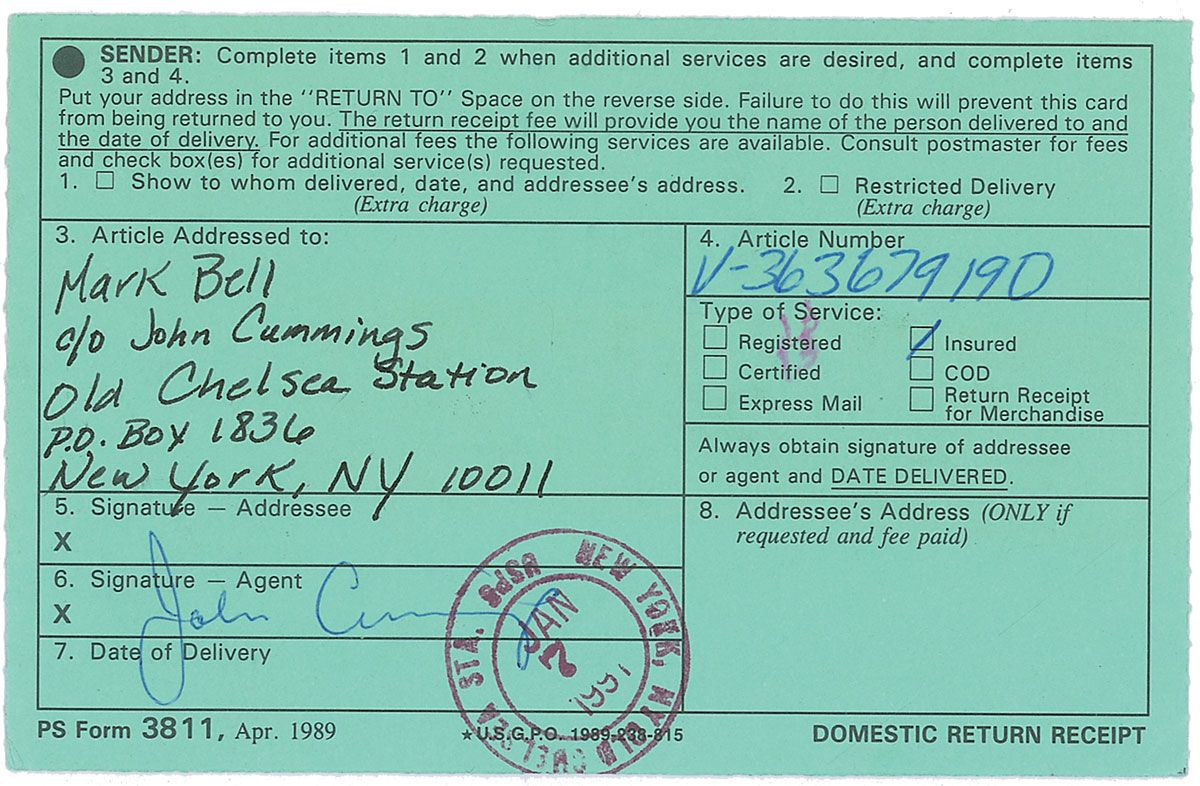 SENDER: Complete items 1 and 2 when additional services are desired, and complete items
3 and 4.
Put your address in the ''RETURN TO'' Space on the reverse side. Failure to do this will prevent this card
from being returned to you. The return receipt fee will provide you the name of the person delivered to and
the date of delivery. For additional fees the following services are available. Consult postmaster for fees
and check box(es) for additional service(s) requested.
1. ☐ Show to whom delivered, date, and addressee's address. 2. ☐ Restricted Delivery
(Extra charge) (Extra charge)
3. Article Addressed to:
Mark Bell
c/o John Cummings
Old Chelsea Station
P.O. Box 1836
New York, NY 10011
4. Article Number
V-363679190
Type of Service:
Registered Insured
Certified COD
Express Mail Return Receipt
for Merchandise
Always obtain signature of addressee
or agent and DATE DELIVERED.
5. Signature — Addressee
X
6. Signature — Agent
X John Cummings
7. Date of Delivery
8. Addressee's Address (ONLY if
requested and fee paid)
NEW YORK, NY
OLD CHELSEA STA.
USPS
JAN
7
1991
PS Form 3811, Apr. 1989
★ U.S.G.P.O. 1989-238-815
DOMESTIC RETURN RECEIPT